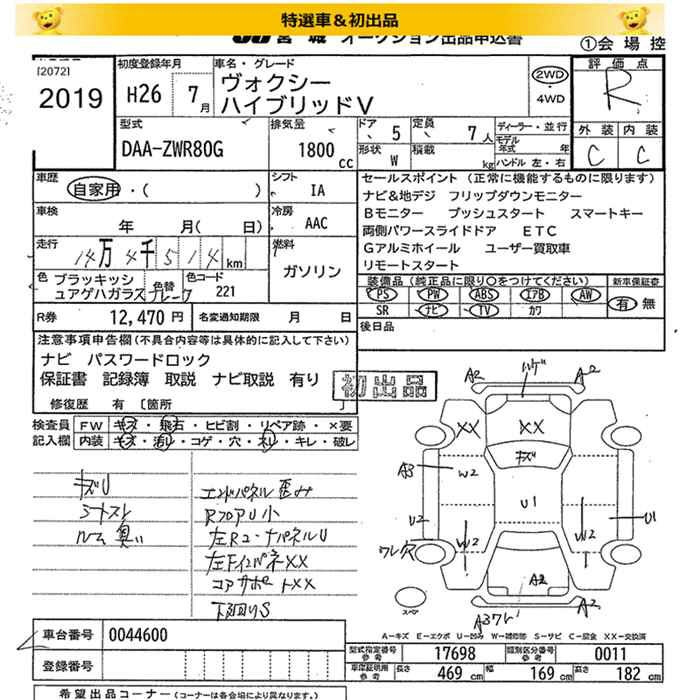 特選車＆初出品
宮城 オークション出品申込書
①会場控
[2072]
2019
初度登録年月
H26 7月
車名・グレード
ヴォクシー
ハイブリッドV
2WD
・
4WD
評価点
R
外装 内装
C C
型式
DAA-ZWR80G
排気量
1800cc
ドア 5
定員 7人
ディーラー・並行
モデル年式 年
形状 W
積載 kg
ハンドル 左・右
車歴 自家用・( )
シフト IA
車検 年 月( 日)
冷房 AAC
走行 14万4千514km
燃料 ガソリン
色 ブラッキッシュアゲハガラスフレーク
色替
色コード 221
R券 12,470円
名変通知期限 月 日
セールスポイント (正常に機能するものに限ります)
ナビ&地デジ フリップダウンモニター
Bモニター プッシュスタート スマートキー
両側パワースライドドア ETC
Gアルミホイール ユーザー買取車
リモートスタート
装備品(純正品に限り○をつけてください)
新車保証書
PS PW ABS エアB AW
有 無
SR ナビ TV カワ
後日品
注意事項申告欄(不具合内容等は具体的に記入して下さい)
ナビ パスワードロック
保証書 記録簿 取説 ナビ取説 有り
初出品
修復歴 有 [箇所 ]
検査員記入欄
FW キズ・飛石・ヒビ割・リペア跡・×要
内装 キズ・汚レ・コゲ・穴・ネジ・キレ・破レ
キズU
シートスレ
ルーム臭い
エンドパネル歪み
RフロアU小
左Rコーナパネル U
左Fインパネ××
コアサポート××
下廻りS
A2 ハゲ A2
×× ××
キズ
A3 W2
U1
U2 W2 W2 U1
ワレ穴
A2
スペア
A3ワレ A2
A−キズ E−エクボ U−凹み W−補修跡 S−サビ C−腐食 ××−交換済
車台番号 0044600
登録番号
型式指定番号参考 17698
類別区分番号参考 0011
車庫証明用参考 長さ 469cm 幅 169cm 高さ 182cm
希望出品コーナー(コーナーは各会場により異なります。)